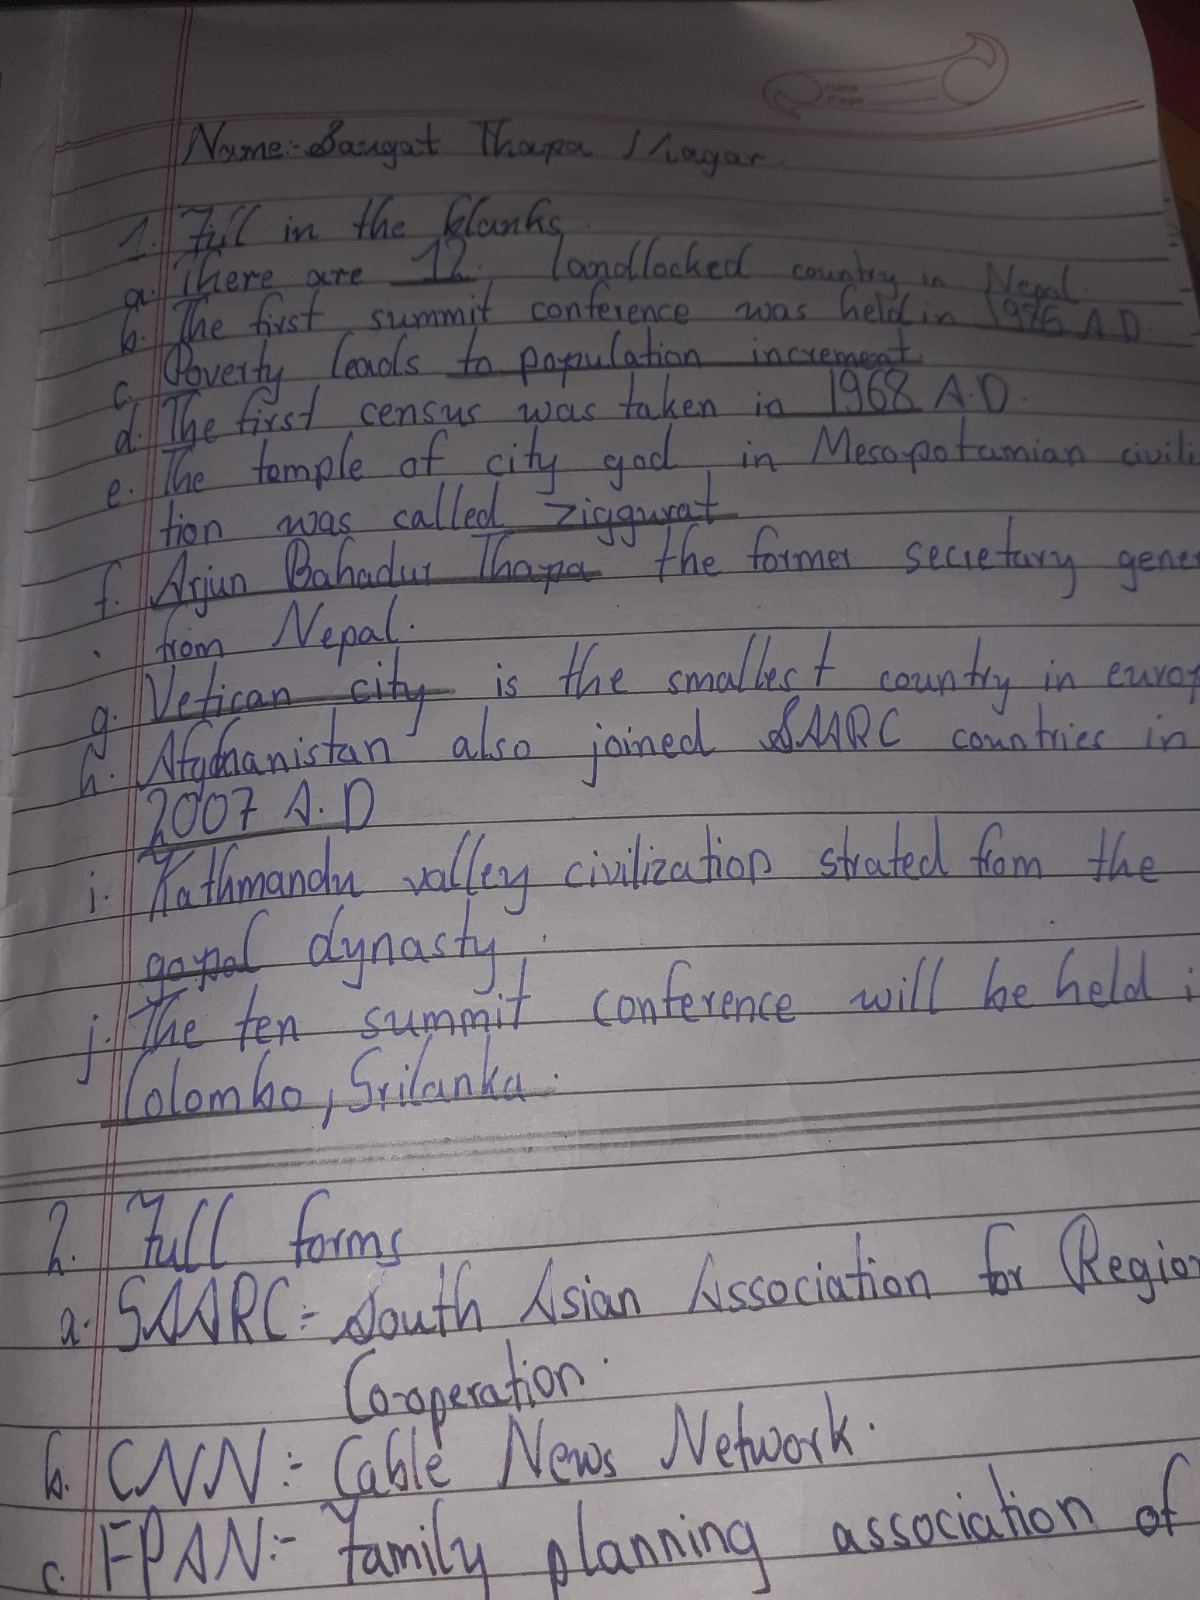 Name:- Saugat Thapa Magar.
1. Fill in the blanks.
a. There are 12 landlocked country in Nepal.
b. The first summit conference was held in 1985 A.D.
c. Poverty leads to population increment.
d. The first census was taken in 1968 A.D.
e. The temple of city god in Mesopotamian civili
tion was called ziggurat
f. Arjun Bahadur Thapa the former secretary gener
from Nepal.
g. Vetican city is the smallest country in europ
h. Afghanistan also joined SAARC countries in
2007 A.D
i. Kathmandu valley civilization strated from the
gopal dynasty.
j. The ten summit conference will be held i
Colombo, Srilanka.
2. Full forms
a. SAARC:- South Asian Association for Region
Co-operation.
b. CNN:- Cable News Network.
c. FPAN:- Family planning association of